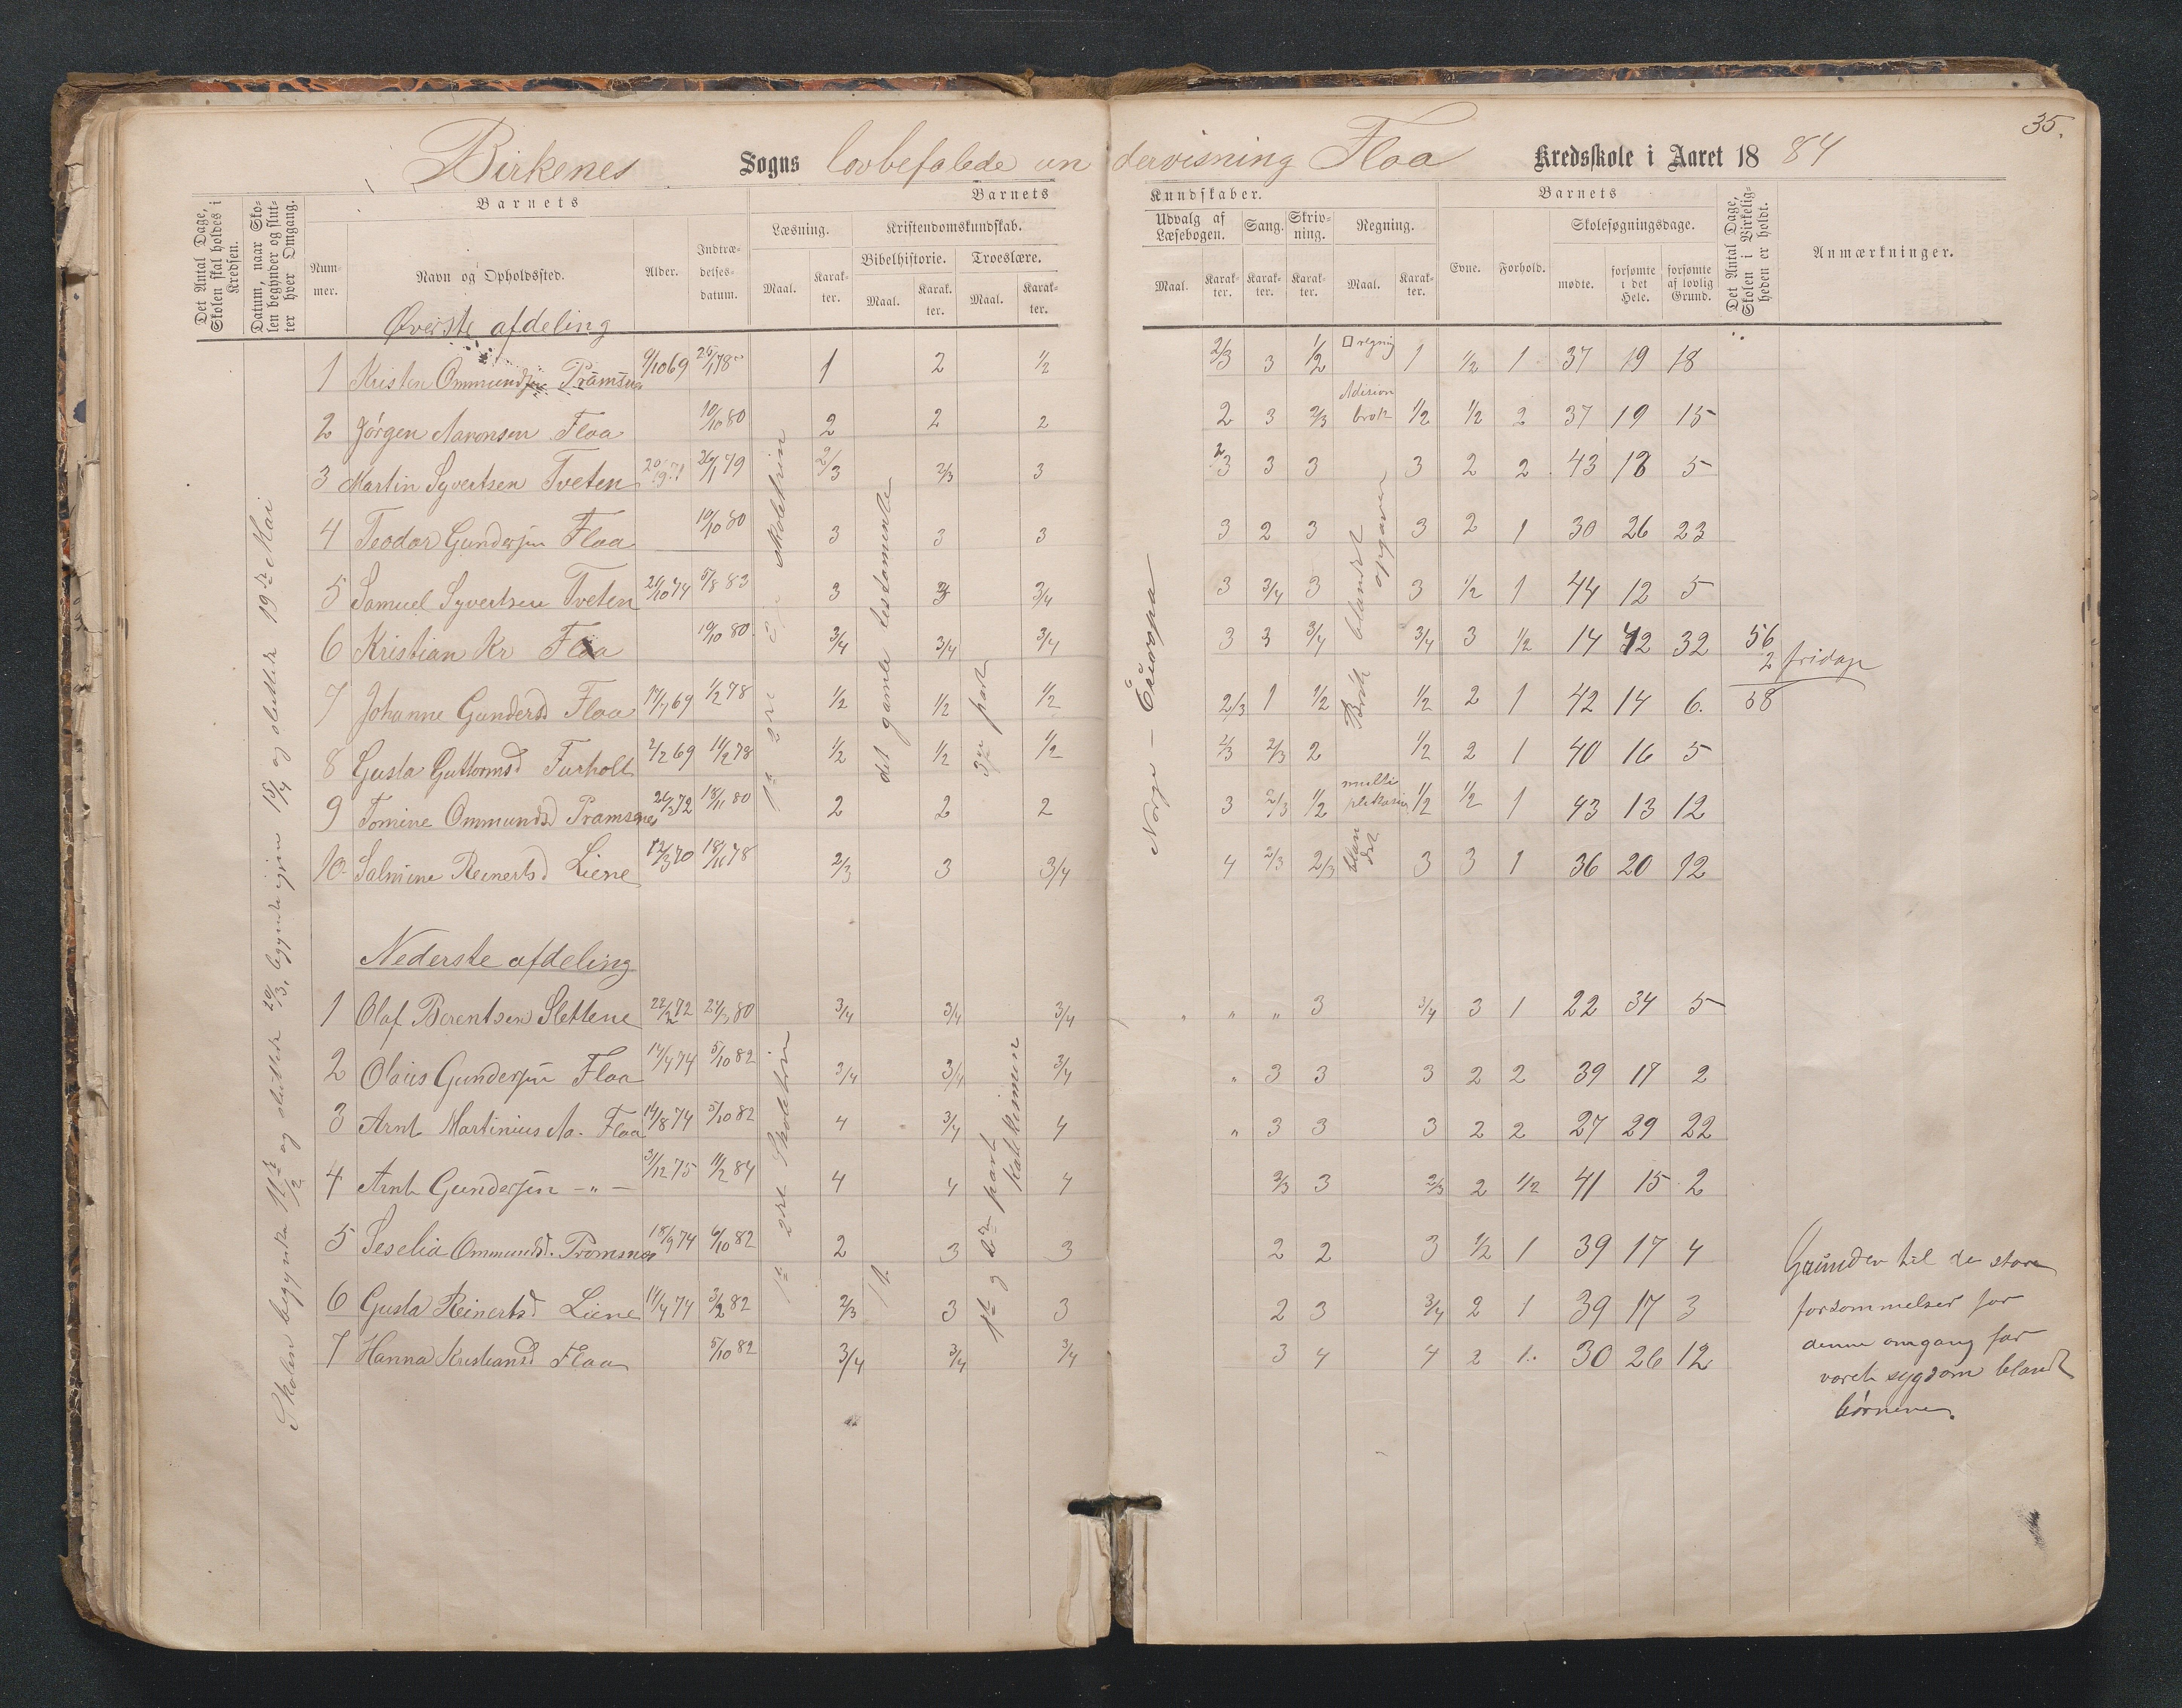 35.
Birkenes Sogns lovbefalede undervisning Floa Kredsskole i Aaret 1884
Det Antal Dage, Skolen skal holdes i Kredsen.
Datum, naar Skolen begynder og slutter hver Omgang.
Barnets
Nummer.
Navn og Opholdssted.
Alder.
Indtrædelsesdatum.
Barnets Kundskaber.
Læsning.
Maal. Karakter.
Kristendomskundskab.
Bibelhistorie. Troeslære.
Maal. Karakter. Maal. Karakter.
Udvalg af Læsebogen.
Maal. Karakter.
Sang. Karakter.
Skrivning. Karakter.
Regning.
Maal. Karakter.
Barnets
Evne. Forhold.
Skolesøgningsdage.
mødte. forsømte i det Hele. forsømte af lovlig Grund.
Det Antal Dage, Skolen i Virkeligheden er holdt.
Anmærkninger.
Skolen begyndte 11te/2 og sluttede 29/3, begyndte igjen 15/4 og sluttede 19de Mai
Øverste afdeling
1 Kristen Ommundsen Pramsnes 9/10 69 1 2 1/2 2/3 3 1/2 □ regnig 1 1/2 1 37 19 18
2 Jørgen Aaronsen Floa 10/10 80 2 2 2 2 3 2/3 Adision brøk 1/2 1/2 2 37 19 15
3 Martin Syvertsen Tveten 26/1 79 2/3 2/3 3 2/3 3 3 3 2 2 43 18 5
4 Teodor Gundersen Floa 10/10 80 3 3 3 3 2 3 3 2 1 30 26 23
5 Samuel Syvertsen Tveten 21/10 74 5/8 83 3 3 3/4 3 3/4 3 3 1/2 1 44 12 5
6 Kristian Kr Floa 10/10 80 3/4 3/4 3/4 3 3 3/4 3/4 3 1/2 14 42 32 56
2 fridage
7 Johanne Gundersd Floa 17/7 69 1/2 78 1/2 1/2 1/2 2/3 1 1/2 1/2 2 1 42 14 6. 58
8 Gusta Guttormsd Furholt 2/2 69 11/2 78 1/2 1/2 1/2 2/3 2/3 2 1/2 2 1 40 16 5
9 Tomine Ommundsd Pramsnes 26/2 72 18/11 80 2 2 2 3 2/3 1/2 multiplikasion 1/2 1/2 1 43 13 12
10 Salmine Reinertsd Liene 12/3 70 18/11 78 2/3 3 3/4 4 2/3 2/3 blandet 3 3 1 36 20 12
det gamle testamente
3die part
Norge – Europa
Brøk blandet opgaver
Nederste afdeling
1 Olaf Berentsen Slettene 22/2 72 80 3/4 3/4 3/4 " " " 3 3/4 3 1 22 34 5
2 Olaus Gundersen Floa 14/4 74 5/10 82 3/4 3/4 3/4 " 3 3 3 2 2 39 17 2
3 Arnt Martinius Aa. Floa 14/8 74 5/10 82 4 3/4 4 " 3 3 3 2 2 27 29 22
4 Arnt Gundersen – " – 31/12 75 11/2 84 4 4 4 2/3 3 2/3 2 1/2 41 15 2
5 Seselia Ommundsd. Promsnes 18/9 74 6/10 82 2 3 3 2 2 3 1/2 1 39 17 4
6 Gusta Reinertsd Liene 14/4 74 3/2 82 2/3 3 3 2 3 3/4 2 1 39 17 3
7 Hanna Kristiansd Floa 5/10 82 3/4 3/4 3/4 3 4 4 2 1. 30 26 12
1te 2det Skoletrin
1ste og part katekismen
Grunden til de store
forsømmelser for
denne omgang har
været sygdom blandt
børnene.